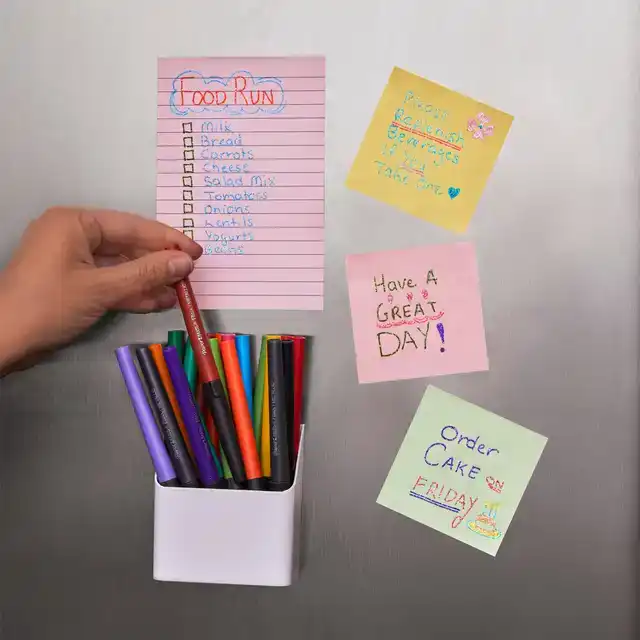 FOOD RUN
Milk
Bread
Carrots
Cheese
Salad Mix
Tomatoes
Onions
Lentils
Yogurts
Beans
Please
Replenish
Beverages
if you
Take one
Have A
GREAT
DAY!
Order
CAKE ON
FRIDAY